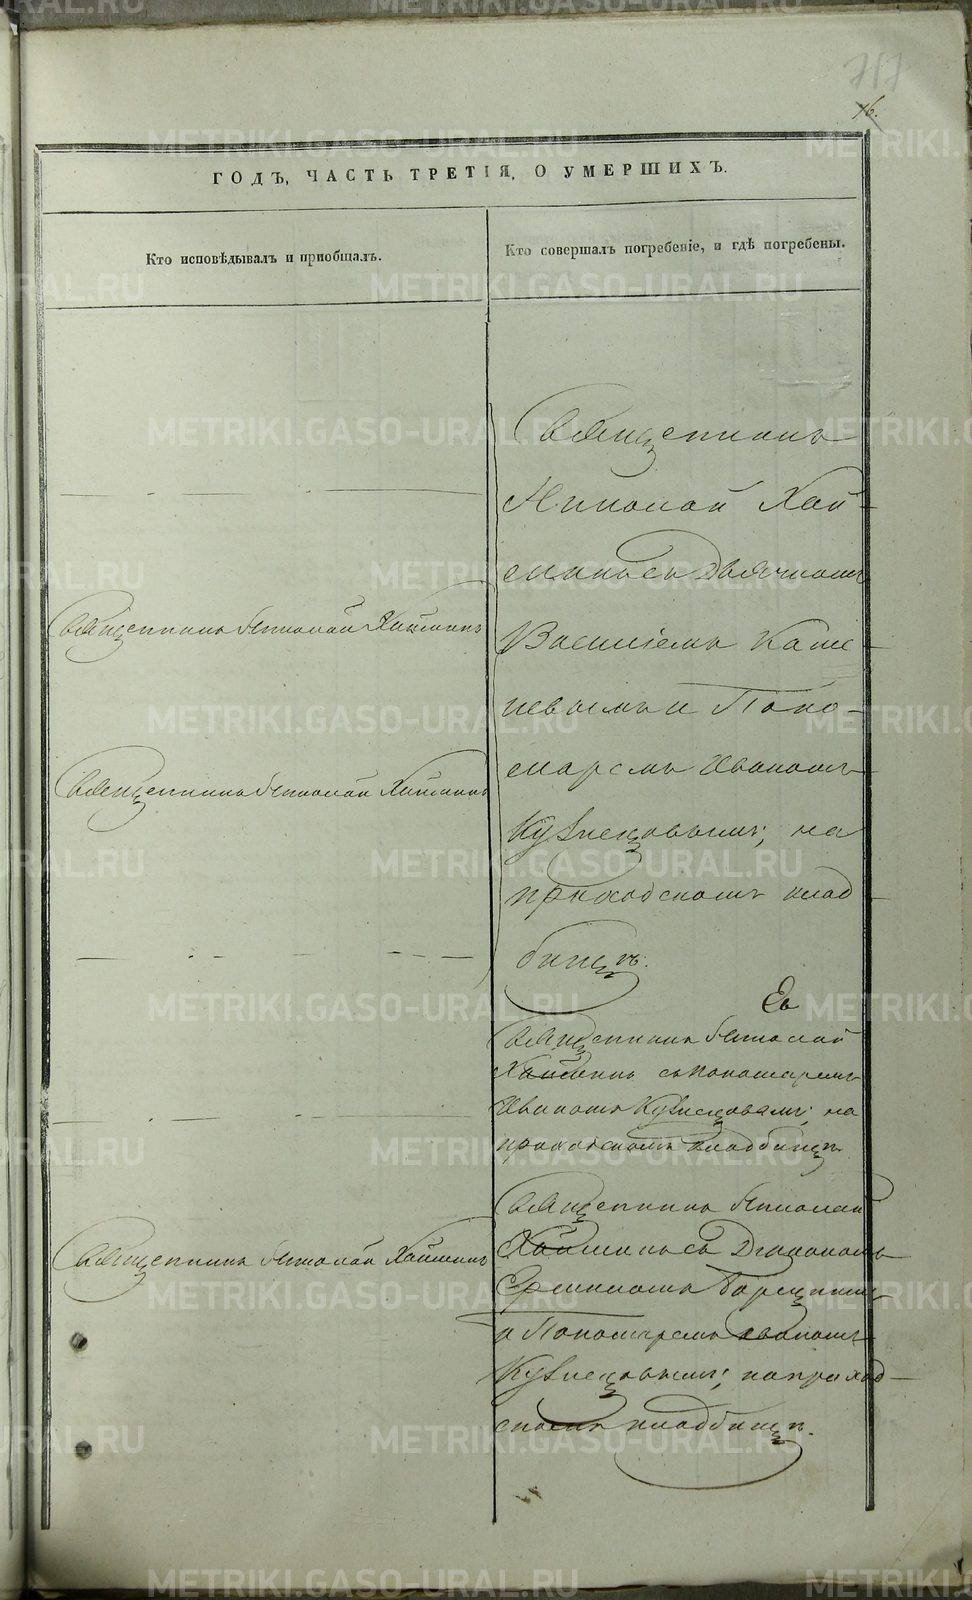 717
16.
ГОДЪ, ЧАСТЬ ТРЕТІЯ, О УМЕРШИХЪ.
Кто исповѣдывалъ и пріобщалъ.
Кто совершалъ погребеніе, и гдѣ погребены.
Священникъ
Николай Хай-
минъ съ Дьячкомъ
Василіемъ Каме-
невымъ и Поно-
маремъ Иваномъ
Кузнецовымъ; на
приходскомъ клад-
бищѣ.
Священникъ Николай Хайминъ
Священникъ Николай Хайминъ
Священникъ Николай
Хайминъ съ Пономаремъ
Иваномъ Кузнецовымъ; на
приходскомъ кладбищѣ
Священникъ Николай Хайминъ
Священникъ Николай
Хайминъ съ Діакономъ
и Пономаремъ Иваномъ
Кузнецовымъ; на приход-
скомъ кладбищѣ.
METRIKI.GASO-URAL.RU